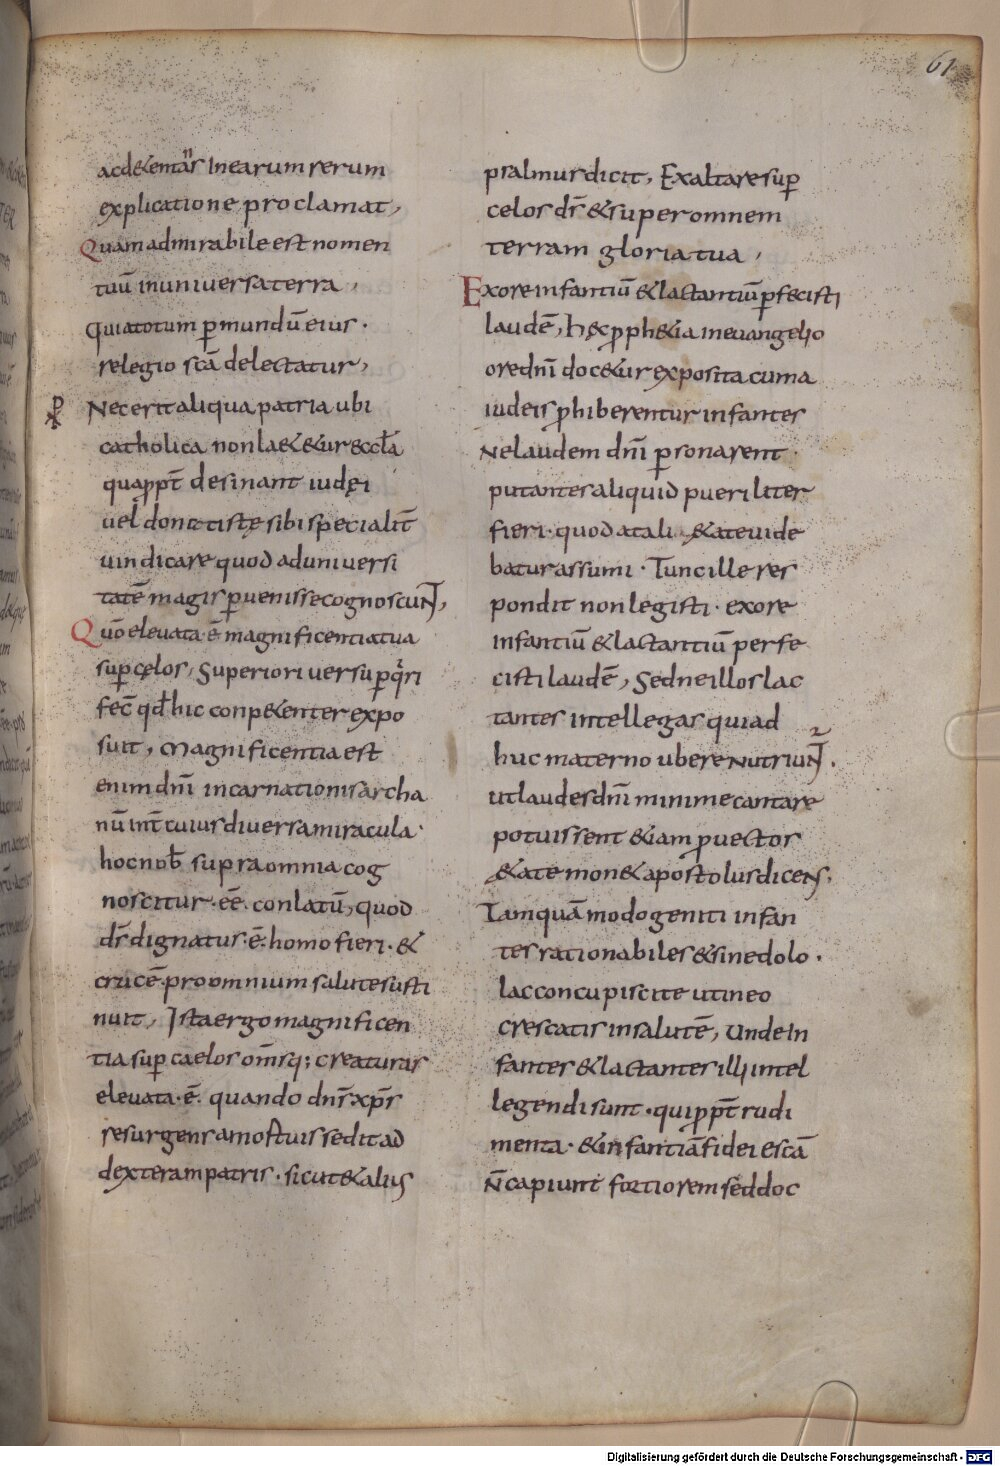 61
acd&emanſ In earum rerum
explicatione proclamat,
Quam admirabile est nomen
tuū in universa terra,
Quia totum p mundū eius.
relegio scā delectatur,
Nec erit aliqua patria ubi
catholica non lae&&ur eccła
quappt̄ desinant iudęi
uel donatistę sibi specialit̄
uindicare quod ad universi
tatē magis puenisse cognoscunt,
Quō elevata ē magnificentia tua
sup cęlos, Superiori versu p qri
fec̄ qđ hic conp&enter expo
suit, Magnificentia est
enim dn̄i incarnationis archa
nū int̄ cuius diversa miracula
hoc nob̄ supra omnia cog
noscitur eē conlatū, quod
dr̄ dignatus ē homo fieri. &
crucē pro omnium salute susti
nuit, Ista ergo magnificen
tia sup caelos om̄sq; creaturas
elevata ē. quando dnr̄ xpr̄
resurgens a mortuis sedit ad
dexteram patris. sicut & alius
psalmus dicit, Exaltare sup
celos dr̄ & super omnem
terram gloria tua,
Ex ore infantiū & lactantiū pfecisti
laudē, hęc pph&ia in evangelio
ore dn̄i doc&ur exposita cum a
iudeis phiberentur infantes
Ne laudem dn̄i psonarent
putantes aliquid pueriliter
fieri. quod a tali &ate vide
batur assumi. Tunc ille res
pondit non legisti. ex ore
infantiū & lactantiū perfe
cisti laudē, Sed ne illos lac
tantes intellegas qui ad
huc materno ubere nutriunt.
ut laudes dn̄i minime cantare
potuissent & iam pvectos
&ate mon& apostolus dicens,
Tamquā modo geniti infan
tes rationabiles & sine dolo.
lac concupiscite ut in eo
crescatis in salutē, Unde in
fantes & lactantes illi intel
legendi sunt. qui ppt̄ rudi
menta. & infantiā fidei escā
n̄ capiunt fortiorem sed doc
Digitalisierung gefördert durch die Deutsche Forschungsgemeinschaft - DFG